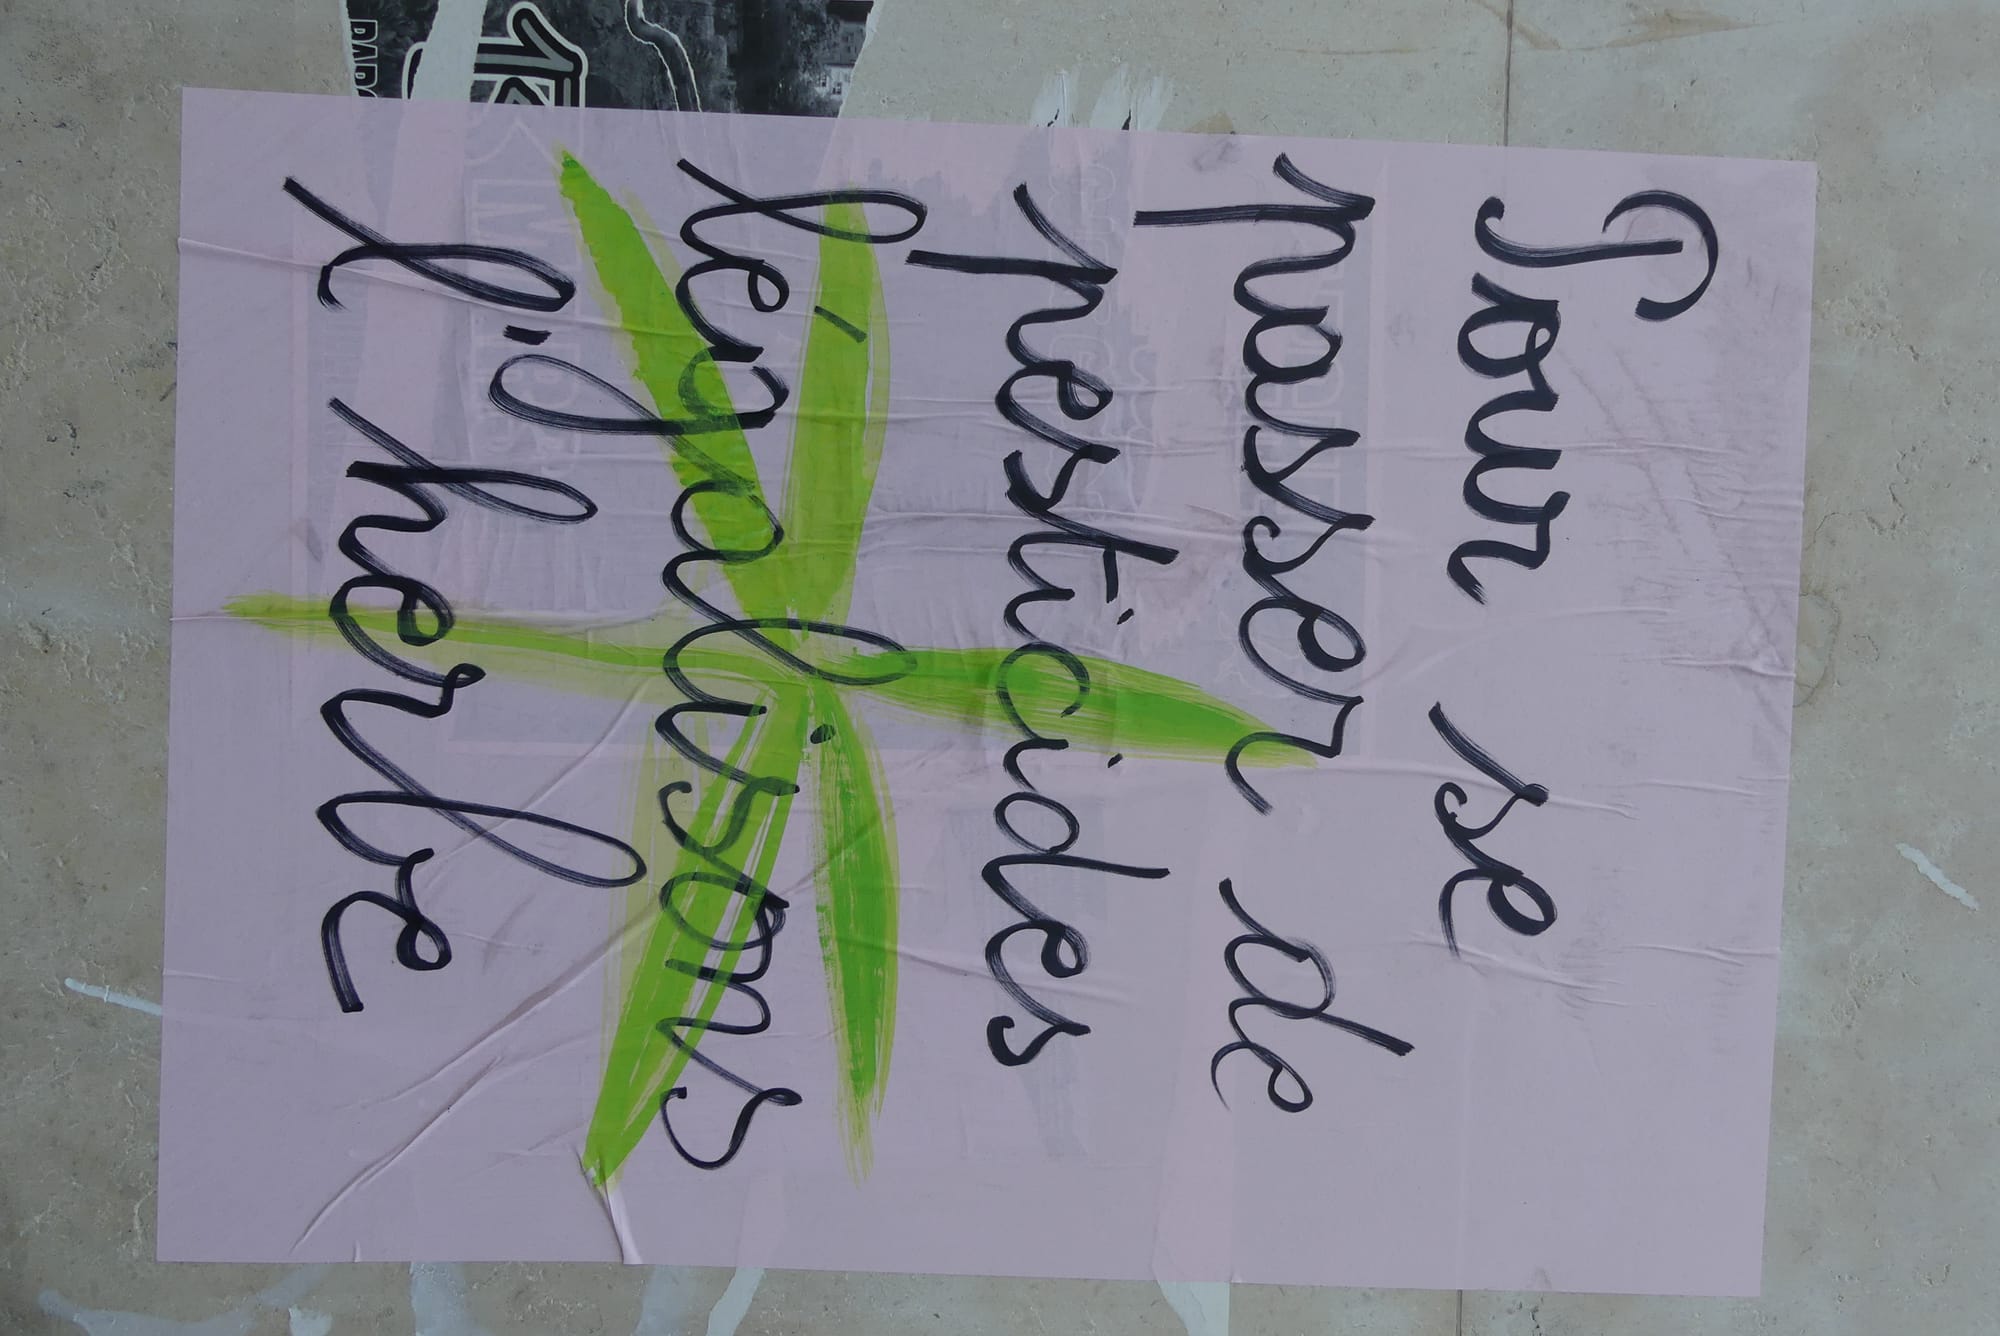 Pour se
passer de
pesticides
légalisons
l'herbe